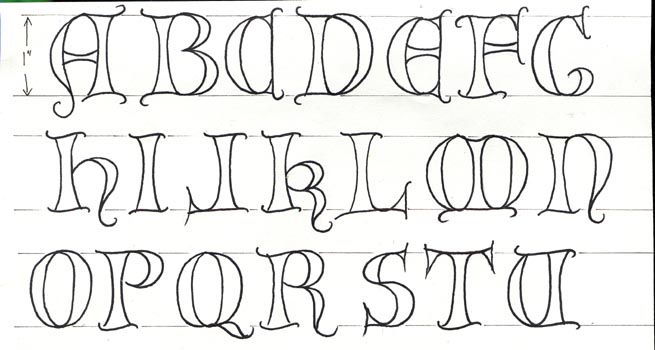 1"
A B C D E F G
h I J k L M N
O P Q R S T U